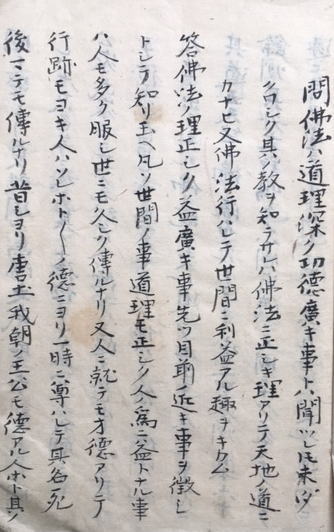 問佛法ハ道理深ク功德廣キ事トハ聞ツレ𪜈未ダ
クワシク其教ヲ知ラサレハ佛法ニ正シキ理アリテ天地ノ道ニ
カナヒ又佛法行ハレテ世間ニ利益アル趣ヲキカム
答佛法ノ理正シク益廣キ事先ツ目前近キ事ヲ徴シ
トシテ知リ玉ヘ凡ソ世間ノ事道理モ正シク人ノ爲ニ益トナル事
ハ人モ多ク服シ世ニモ久シク傳ルナリ又人ニ就テモ才德アリテ
行跡モヨキ人ハソレホト〱ノ德ニヨリ一時ニ尊ハレテ其名死
後マテモ傳ルナリ昔シヨリ唐土我朝ノ王公モ德アル人ホト其